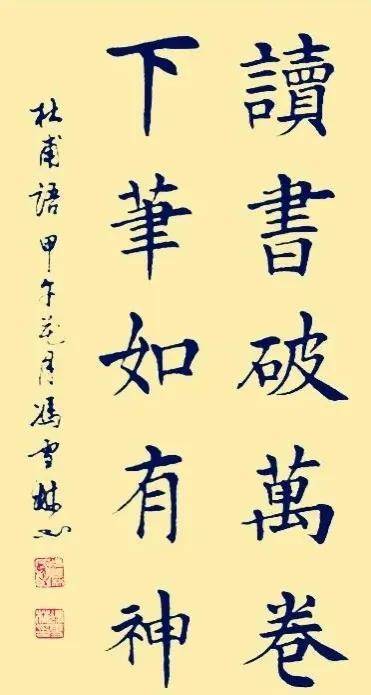 讀書破萬卷
下筆如有神
杜甫語甲午花月馮雪林